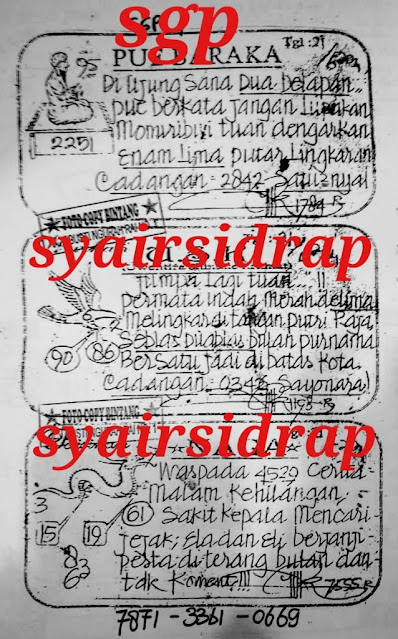 sgp
PUE BARAKA
Tgl : 21
95
Di Ujung Sana Dua Delapan..
pue berkata jangan Lupakan
tuan dengarkan
2251
Enam Lima putar Lingkaran
Cadangan = 2842
1784-B
★ FOTO COPY BINTANG ★
syairsidrap
Jumpa lagi tuan... !!
permata indah Merah delima
2
Melingkar di tangan putri Raja
bulan purnama
90
86
Bersatu Jadi di batas Kota.
Cadangan : 0342 Sayonara!
1193-B
★ FOTO COPY BINTANG ★
syairsidrap
Waspada 4529
Malam Kehilangan
3
61
Sakit Kepala Mencari
15
19
Jejak; Ela dan Eli berjanji
83
pesta di terang bulan dan
6
tdk Koment !!!
7555-B
7871 - 3361 - 0669